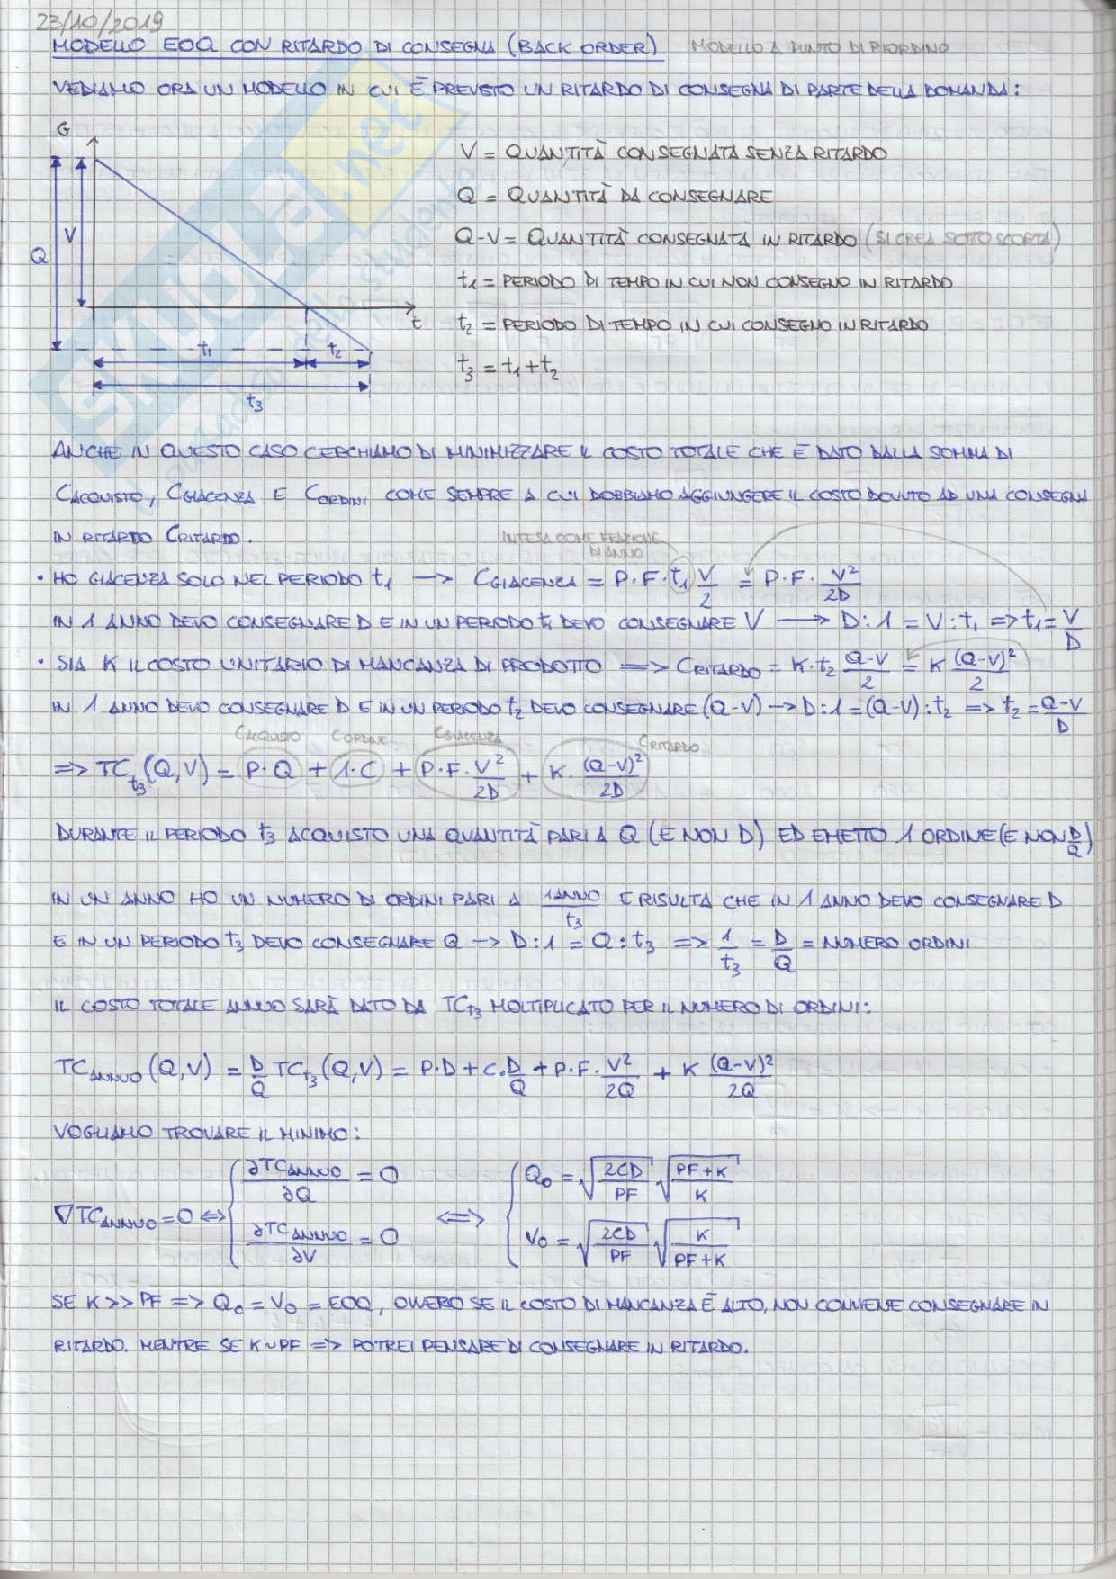 23/10/2019
MODELLO EOQ CON RITARDO DI CONSEGNA (BACK ORDER) MODELLO A PUNTO DI RIORDINO
VEDIAMO ORA UN MODELLO IN CUI È PREVISTO UN RITARDO DI CONSEGNA DI PARTE DELLA DOMANDA:
G
V = QUANTITÀ CONSEGNATA SENZA RITARDO
Q = QUANTITÀ DA CONSEGNARE
V
Q
Q-V = QUANTITÀ CONSEGNATA IN RITARDO (SI CREA SOTTO SCORTA)
t₁ = PERIODO DI TEMPO IN CUI NON CONSEGNO IN RITARDO
t
t₂ = PERIODO DI TEMPO IN CUI CONSEGNO IN RITARDO
t₁ t₂
t₃ = t₁+t₂
t₃
ANCHE IN QUESTO CASO CERCHIAMO DI MINIMIZZARE IL COSTO TOTALE CHE È DATO DALLA SOMMA DI
CACQUISTO, CGIACENZA E CORDINI COME SEMPRE A CUI DOBBIAMO AGGIUNGERE IL COSTO DOVUTO AD UNA CONSEGNA
IN RITARDO CRITARDO.
INTESA COME FRAZIONE DI ANNO
• HO GIACENZA SOLO NEL PERIODO t₁ → CGIACENZA = P·F·t₁ V/2 = P·F· V²/2D
IN 1 ANNO DEVO CONSEGNARE D E IN UN PERIODO t₁ DEVO CONSEGNARE V → D:1 = V:t₁ => t₁ = V/D
• SIA K IL COSTO UNITARIO DI MANCANZA DI PRODOTTO => CRITARDO = K·t₂ (Q-V)/2 = K (Q-V)²/2
IN 1 ANNO DEVO CONSEGNARE D E IN UN PERIODO t₂ DEVO CONSEGNARE (Q-V) → D:1 = (Q-V):t₂ => t₂ = (Q-V)/D
CACQUISTO CORDINE CGIACENZA CRITARDO
=> TCt₃(Q,V) = P·Q + 1·C + P·F· V²/2D + K· (Q-V)²/2D
DURANTE IL PERIODO t₃ ACQUISTO UNA QUANTITÀ PARI A Q (E NON D) ED EMETTO 1 ORDINE (E NON D/Q)
IN UN ANNO HO UN NUMERO DI ORDINI PARI A 1 ANNO/t₃ E RISULTA CHE IN 1 ANNO DEVO CONSEGNARE D
E IN UN PERIODO t₃ DEVO CONSEGNARE Q → D:1 = Q:t₃ => 1/t₃ = D/Q = NUMERO ORDINI
IL COSTO TOTALE ANNUO SARÀ DATO DA TCt₃ MOLTIPLICATO PER IL NUMERO DI ORDINI:
TCANNUO (Q,V) = D/Q TCt₃(Q,V) = P·D + C·D/Q + P·F· V²/2Q + K (Q-V)²/2Q
VOGLIAMO TROVARE IL MINIMO:
∇TCANNUO = 0 ⇔ { ∂TCANNUO/∂Q = 0 ; ∂TCANNUO/∂V = 0 ⇔ { Q₀ = √(2CD/PF) √((PF+K)/K) ; V₀ = √(2CD/PF) √(K/(PF+K))
SE K>>PF => Q₀ = V₀ = EOQ, OVVERO SE IL COSTO DI MANCANZA È ALTO, NON CONVIENE CONSEGNARE IN
RITARDO. MENTRE SE K∼PF => POTREI PENSARE DI CONSEGNARE IN RITARDO.